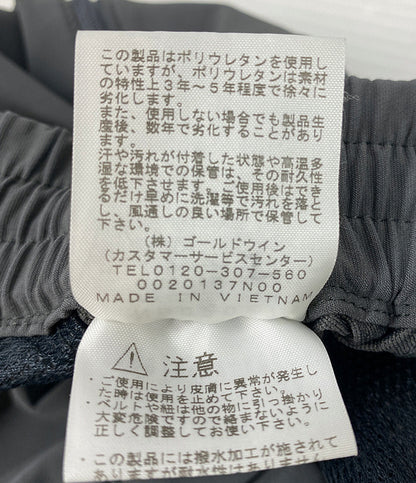 この製品はポリウレタンを使用し
ていますが、ポリウレタンは素材
の特性上3年～5年程度で徐々に
劣化します。
また、使用しない場合でも製品生
産後、数年で劣化することがあり
ます。
汗や汚れが付着した状態や高温多
湿な環境での保管は、その耐久性
を低下させます。ご使用後はでき
るだけ早めに洗濯等で汚れを落と
し、風通しの良い場所で保管して
下さい。
(株) ゴールドウイン
(カスタマーサービスセンター)
TEL0120-307-560
0020137N00
MADE IN VIETNAM
注意
・ご使用により皮膚に異常が発生し
た時は使用を止めて下さい。
・ベルトや紐は他の物に引っ掛かり
大変危険ですので絡まないように
正しく調整してお使い下さい。
・この製品には撥水加工が施されて
ありますが耐水性はありません。